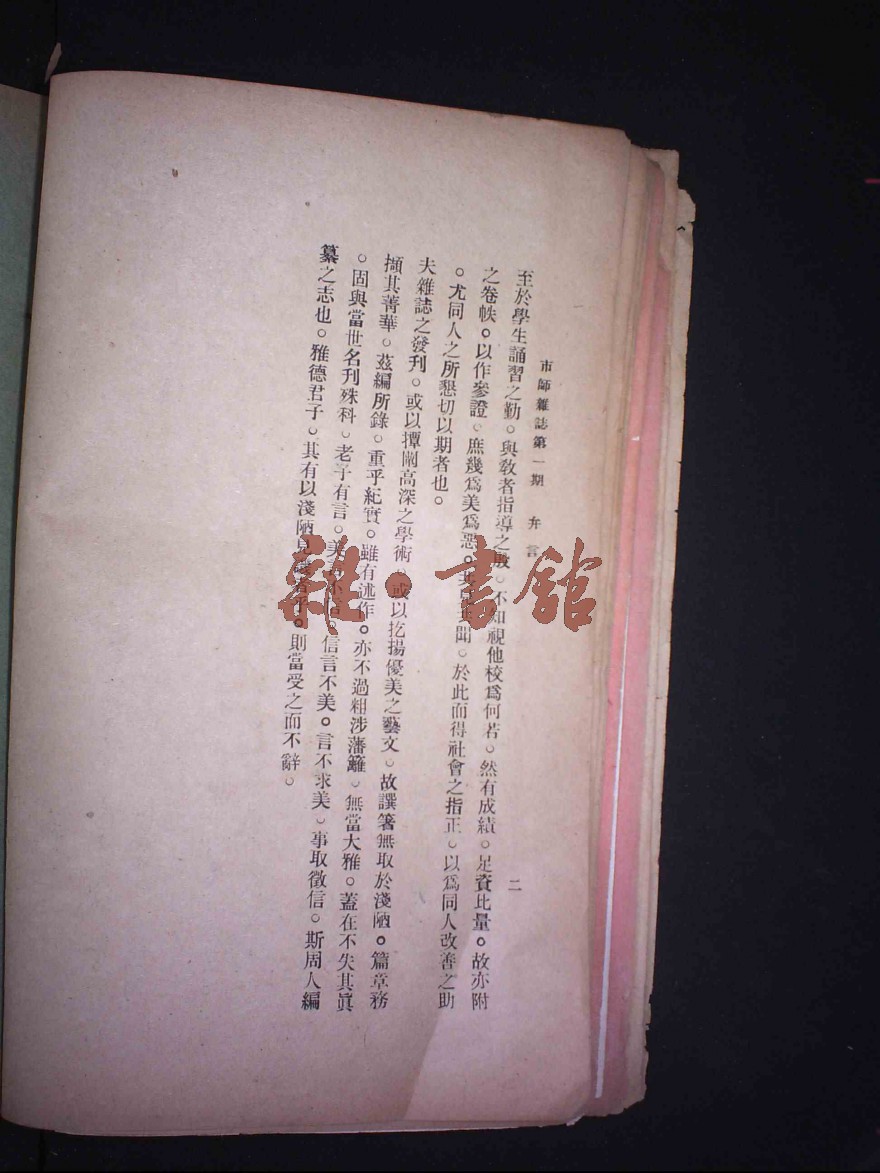 市師雜誌第一期 弁言
二
至於學生誦習之勤。與敎者指導之殷。不知視他校爲何若。然有成績。足資比量。故亦附
之卷帙。以作參證。庶幾爲美爲惡。共見共聞。於此而得社會之指正。以爲同人改善之助
。尤同人之所懇切以期者也。
夫雜誌之發刋。或以撢闡高深之學術。或以扢揚優美之藝文。故譔箸無取於淺陋。篇章務
擷其菁華。茲編所錄。重乎紀實。雖有述作。亦不過粗涉藩籬。無當大雅。蓋在不失其眞
。固與當世名刋殊科。老子有言。美言不信。信言不美。言不求美。事取徵信。斯周人編
纂之志也。雅德君子。其有以淺陋見 者乎。則當受之而不辭。
雜·書館